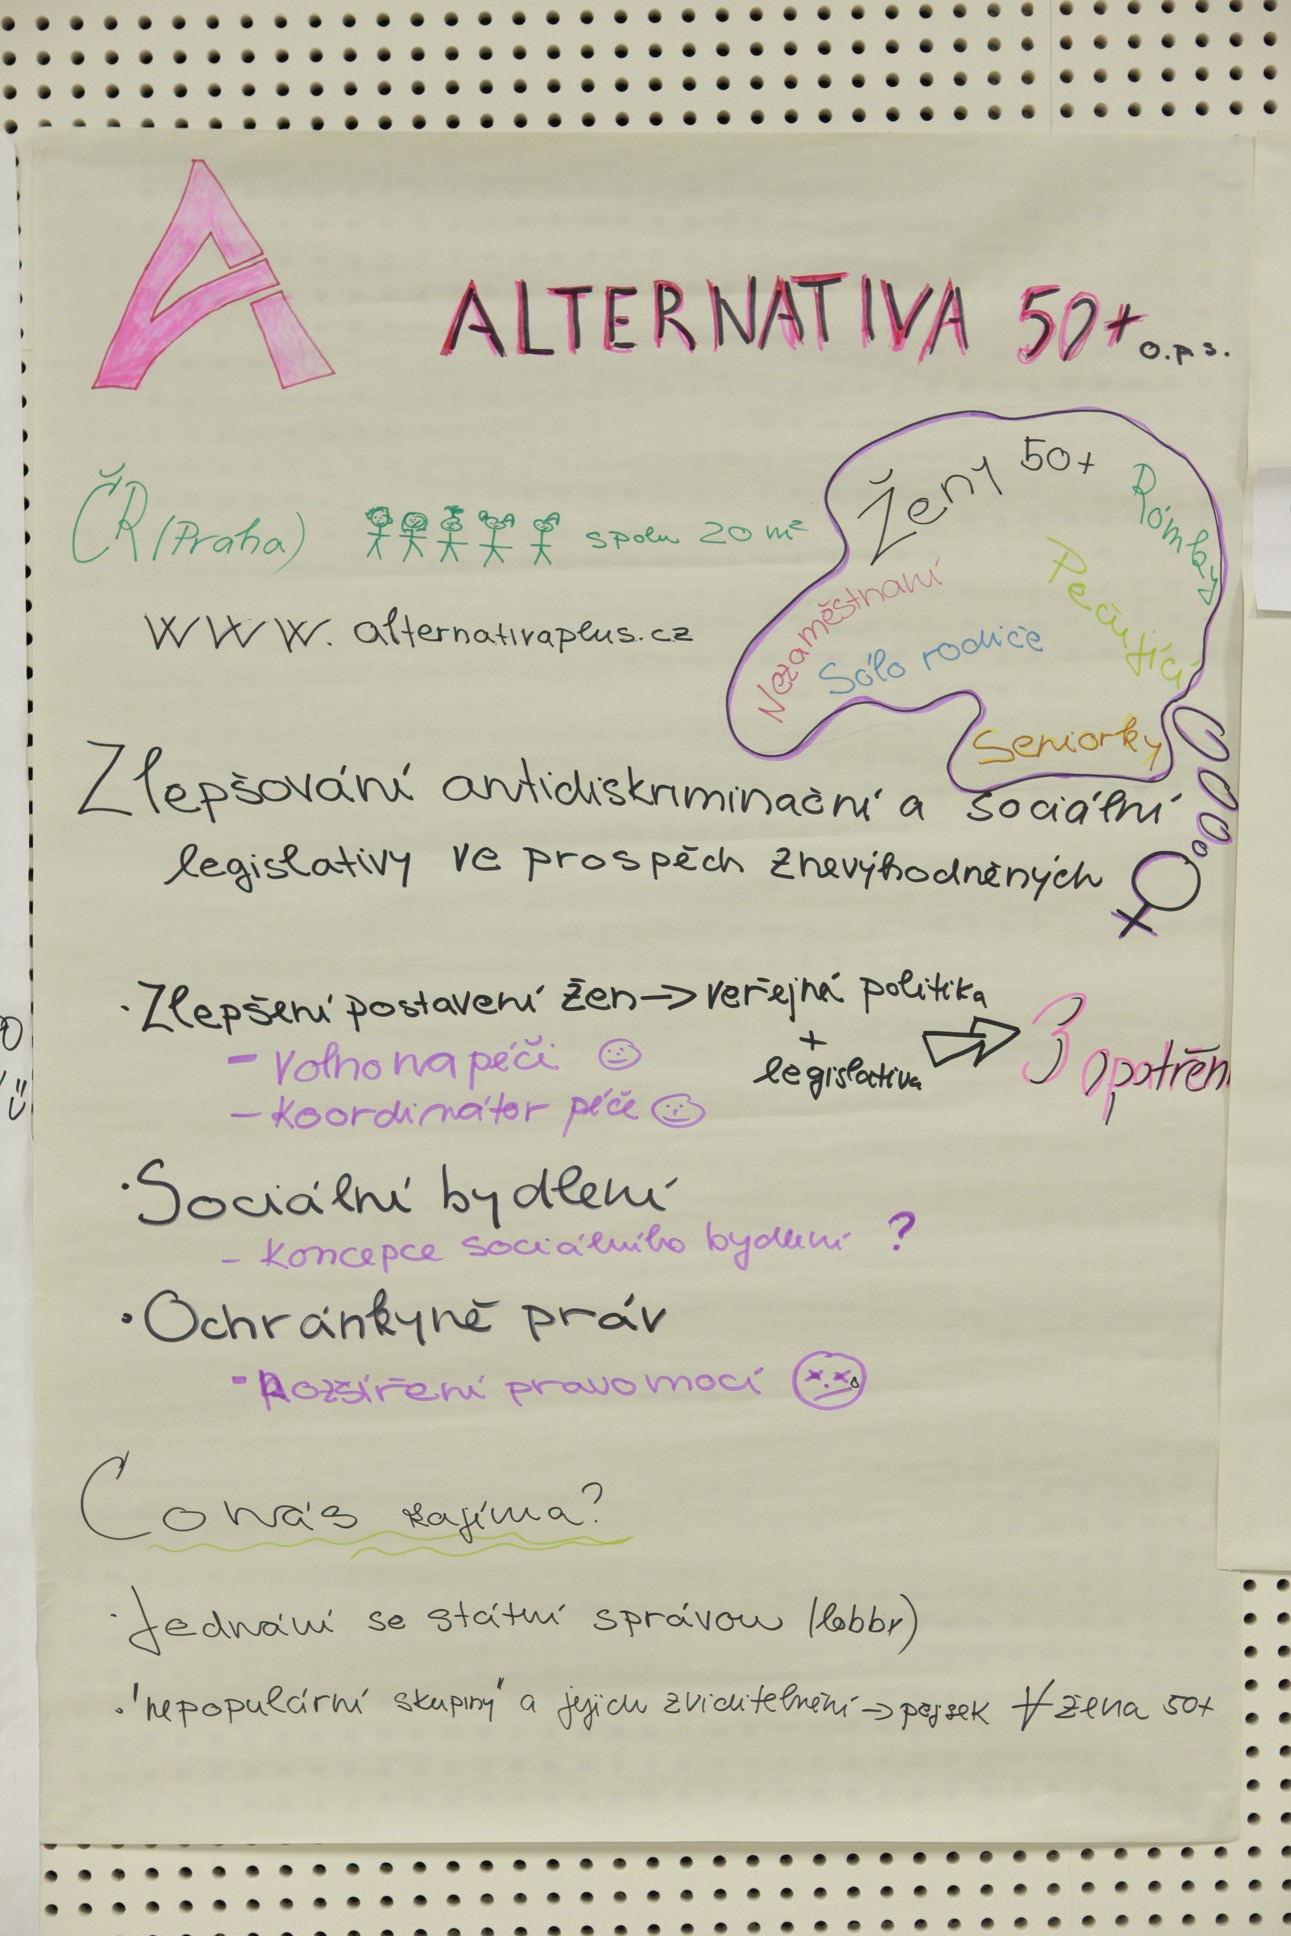 A
ALTERNATIVA 50+ o.p.s.
Ženy 50+
Romky
Pečující
Nezaměstnaní
Sólo rodiče
Seniorky
ČR (Praha) spolu 20 m²
www.alternativaplus.cz
Zlepšování antidiskriminační a sociální
legislativy ve prospěch znevýhodněných
· Zlepšení postavení žen → veřejná politika
+
legislativa
3 opatřen
- Volno na péči
- Koordinátor péče
· Sociální bydlení
- Koncepce sociálního bydlení ?
· Ochránkyně práv
- Rozšíření pravomocí
Co nás zajímá?
· Jednání se státní správou (lobby)
· "nepopulární skupiny" a jejich zviditelnění → pejsek žena 50+